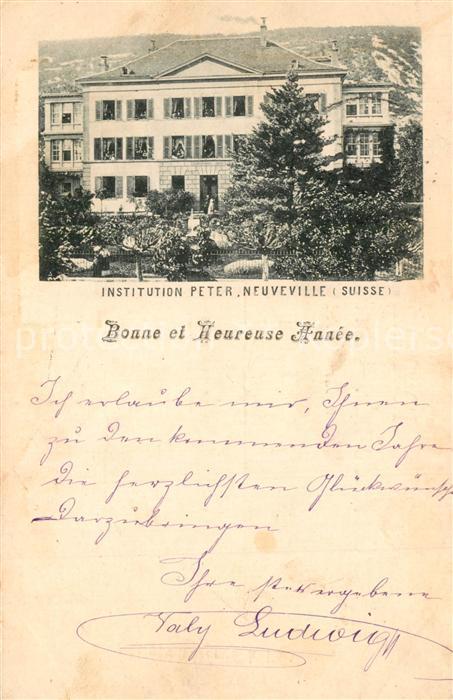 INSTITUTION PETER, NEUVEVILLE (SUISSE)
Bonne et Heureuse Année.
Ich erlaube mir, Ihnen
zu den kommenden Jahre
die herzlichsten Glückwünsche
darzubringen
Ihre stets ergebene
Valy Ludwig